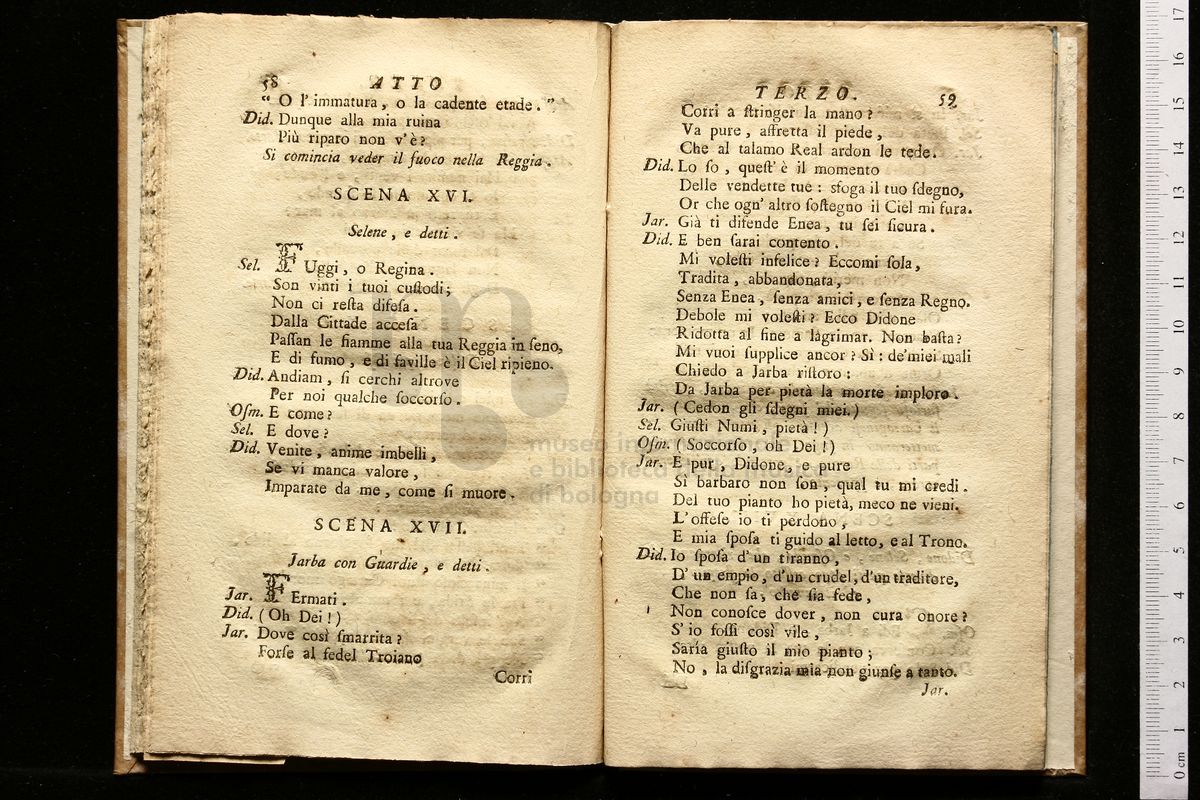 58 ATTO
“ O l' immatura, o la cadente etade. ”
Did. Dunque alla mia ruina
Più riparo non v'è?
Si comincia veder il fuoco nella Reggia.
SCENA XVI.
Selene, e detti.
Sel. FUggi, o Regina.
Son vinti i tuoi cuſtodi;
Non ci reſta difeſa.
Dalla Cittade acceſa
Paſſan le fiamme alla tua Reggia in ſeno,
E di fumo, e di faville è il Ciel ripieno.
Did. Andiam, ſi cerchi altrove
Per noi qualche ſoccorſo.
Oſm. E come?
Sel. E dove?
Did. Venite, anime imbelli,
Se vi manca valore,
Imparate da me, come ſi muore.
SCENA XVII.
Jarba con Guardie, e detti.
Jar. FErmati.
Did. (Oh Dei!)
Jar. Dove così ſmarrita?
Forſe al fedel Troiano
Corri
TERZO. 59
Corri a ſtringer la mano?
Va pure, affretta il piede,
Che al talamo Real ardon le tede.
Did. Lo ſo, queſt' è il momento
Delle vendette tue: sfoga il tuo ſdegno,
Or che ogn' altro ſoſtegno il Ciel mi fura.
Jar. Già ti difende Enea, tu ſei ſicura.
Did. E ben ſarai contento.
Mi voleſti infelice? Eccomi ſola,
Tradita, abbandonata,
Senza Enea, ſenza amici, e ſenza Regno.
Debole mi voleſti? Ecco Didone
Ridotta al fine a lagrimar. Non baſta?
Mi vuoi ſupplice ancor? Sì: de'miei mali
Chiedo a Jarba riſtoro:
Da Jarba per pietà la morte imploro.
Jar. (Cedon gli ſdegni miei.)
Sel. Giuſti Numi, pietà!)
Oſm. (Soccorſo, oh Dei!)
Jar. E pur, Didone, e pure
Sì barbaro non ſon, qual tu mi credi.
Del tuo pianto ho pietà, meco ne vieni.
L'offeſe io ti perdono,
E mia ſpoſa ti guido al letto, e al Trono.
Did. Io ſpoſa d'un tiranno,
D'un empio, d'un crudel, d'un traditore,
Che non ſa, che ſia fede,
Non conoſce dover, non cura onore?
S'io foſſi così vile,
Saría giuſto il mio pianto;
No, la diſgrazia mia non giunſe a tanto.
Jar.
di bologna
0 cm 1 2 3 4 5 6 7 8 9 10 11 12 13 14 15 16 17